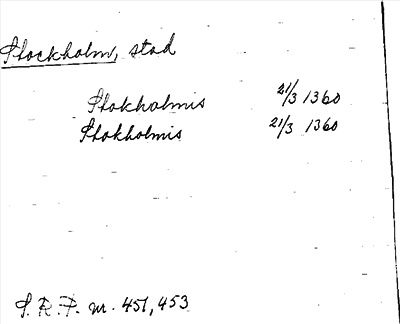 Stockholm, stad
Stokholmis 21/3 1360
Stokholmis 21/3 1360
S. R. P. nr. 451, 453